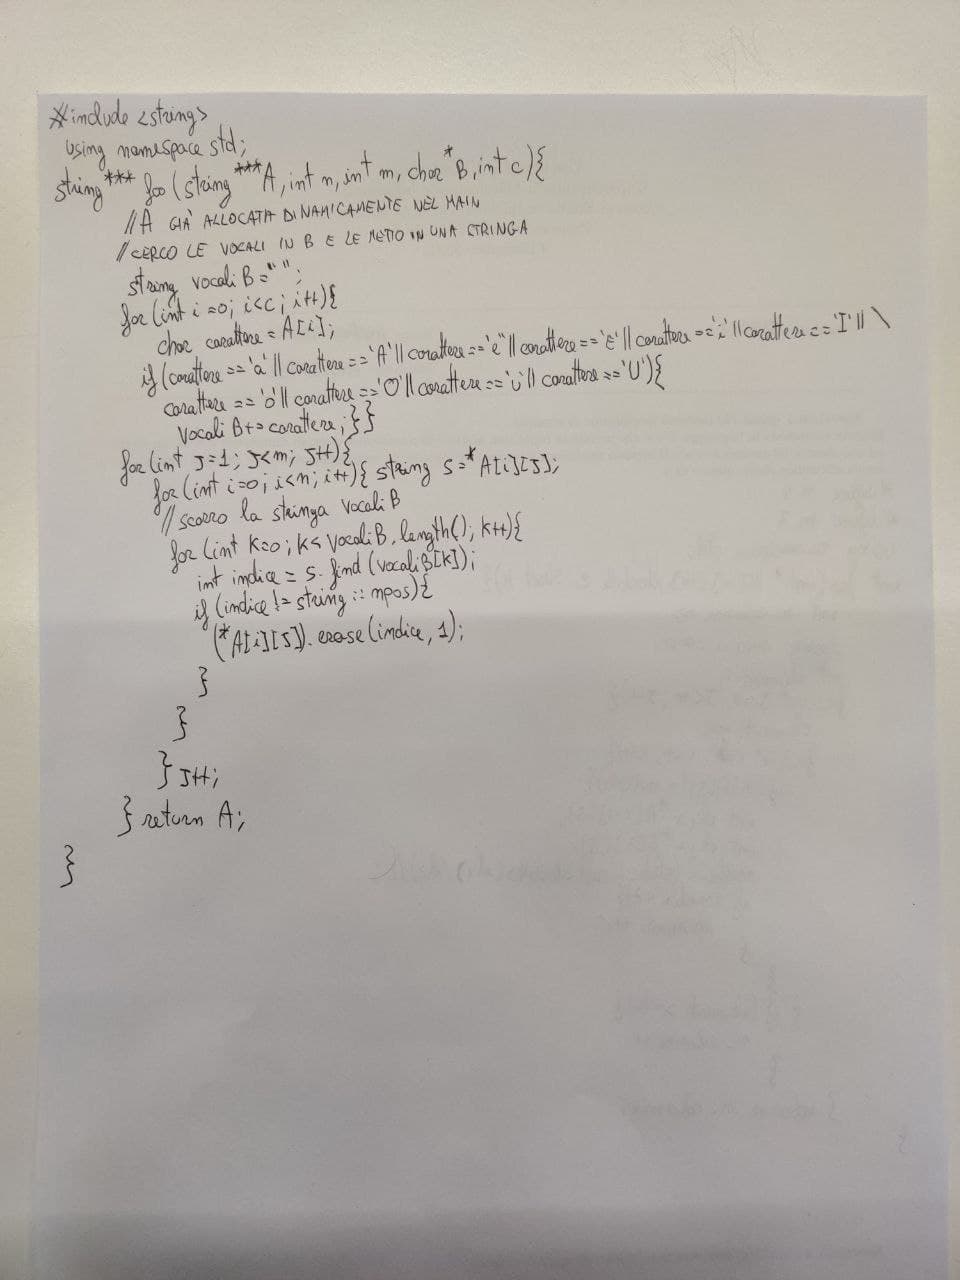 #include <string>
using namespace std;
string*** foo (string ***A, int n, int m, char *B, int c){
//A GIÀ ALLOCATA DINAMICAMENTE NEL MAIN
//CERCO LE VOCALI IN B E LE METTO IN UNA STRINGA
string vocaliB=" ";
for (int i=0; i<c; i++){
char carattere = A[i];
if (carattere == 'a' || carattere == 'A' || carattere == 'e' || carattere == 'E' || carattere == 'i' || carattere == 'I' || \
carattere == 'o' || carattere == 'O' || carattere == 'u' || carattere == 'U'){
vocaliB += carattere; }}
for (int J=1; J<m; J++){
for (int i=0; i<n; i++){ string s=*A[i][J];
// scorro la stringa vocaliB
for (int k=0; k< vocaliB.length(); k++){
int indice = s.find (vocaliB[k]);
if (indice != string::npos){
(*A[i][J]).erase(indice, 1);
}
}
} J++;
} return A;
}